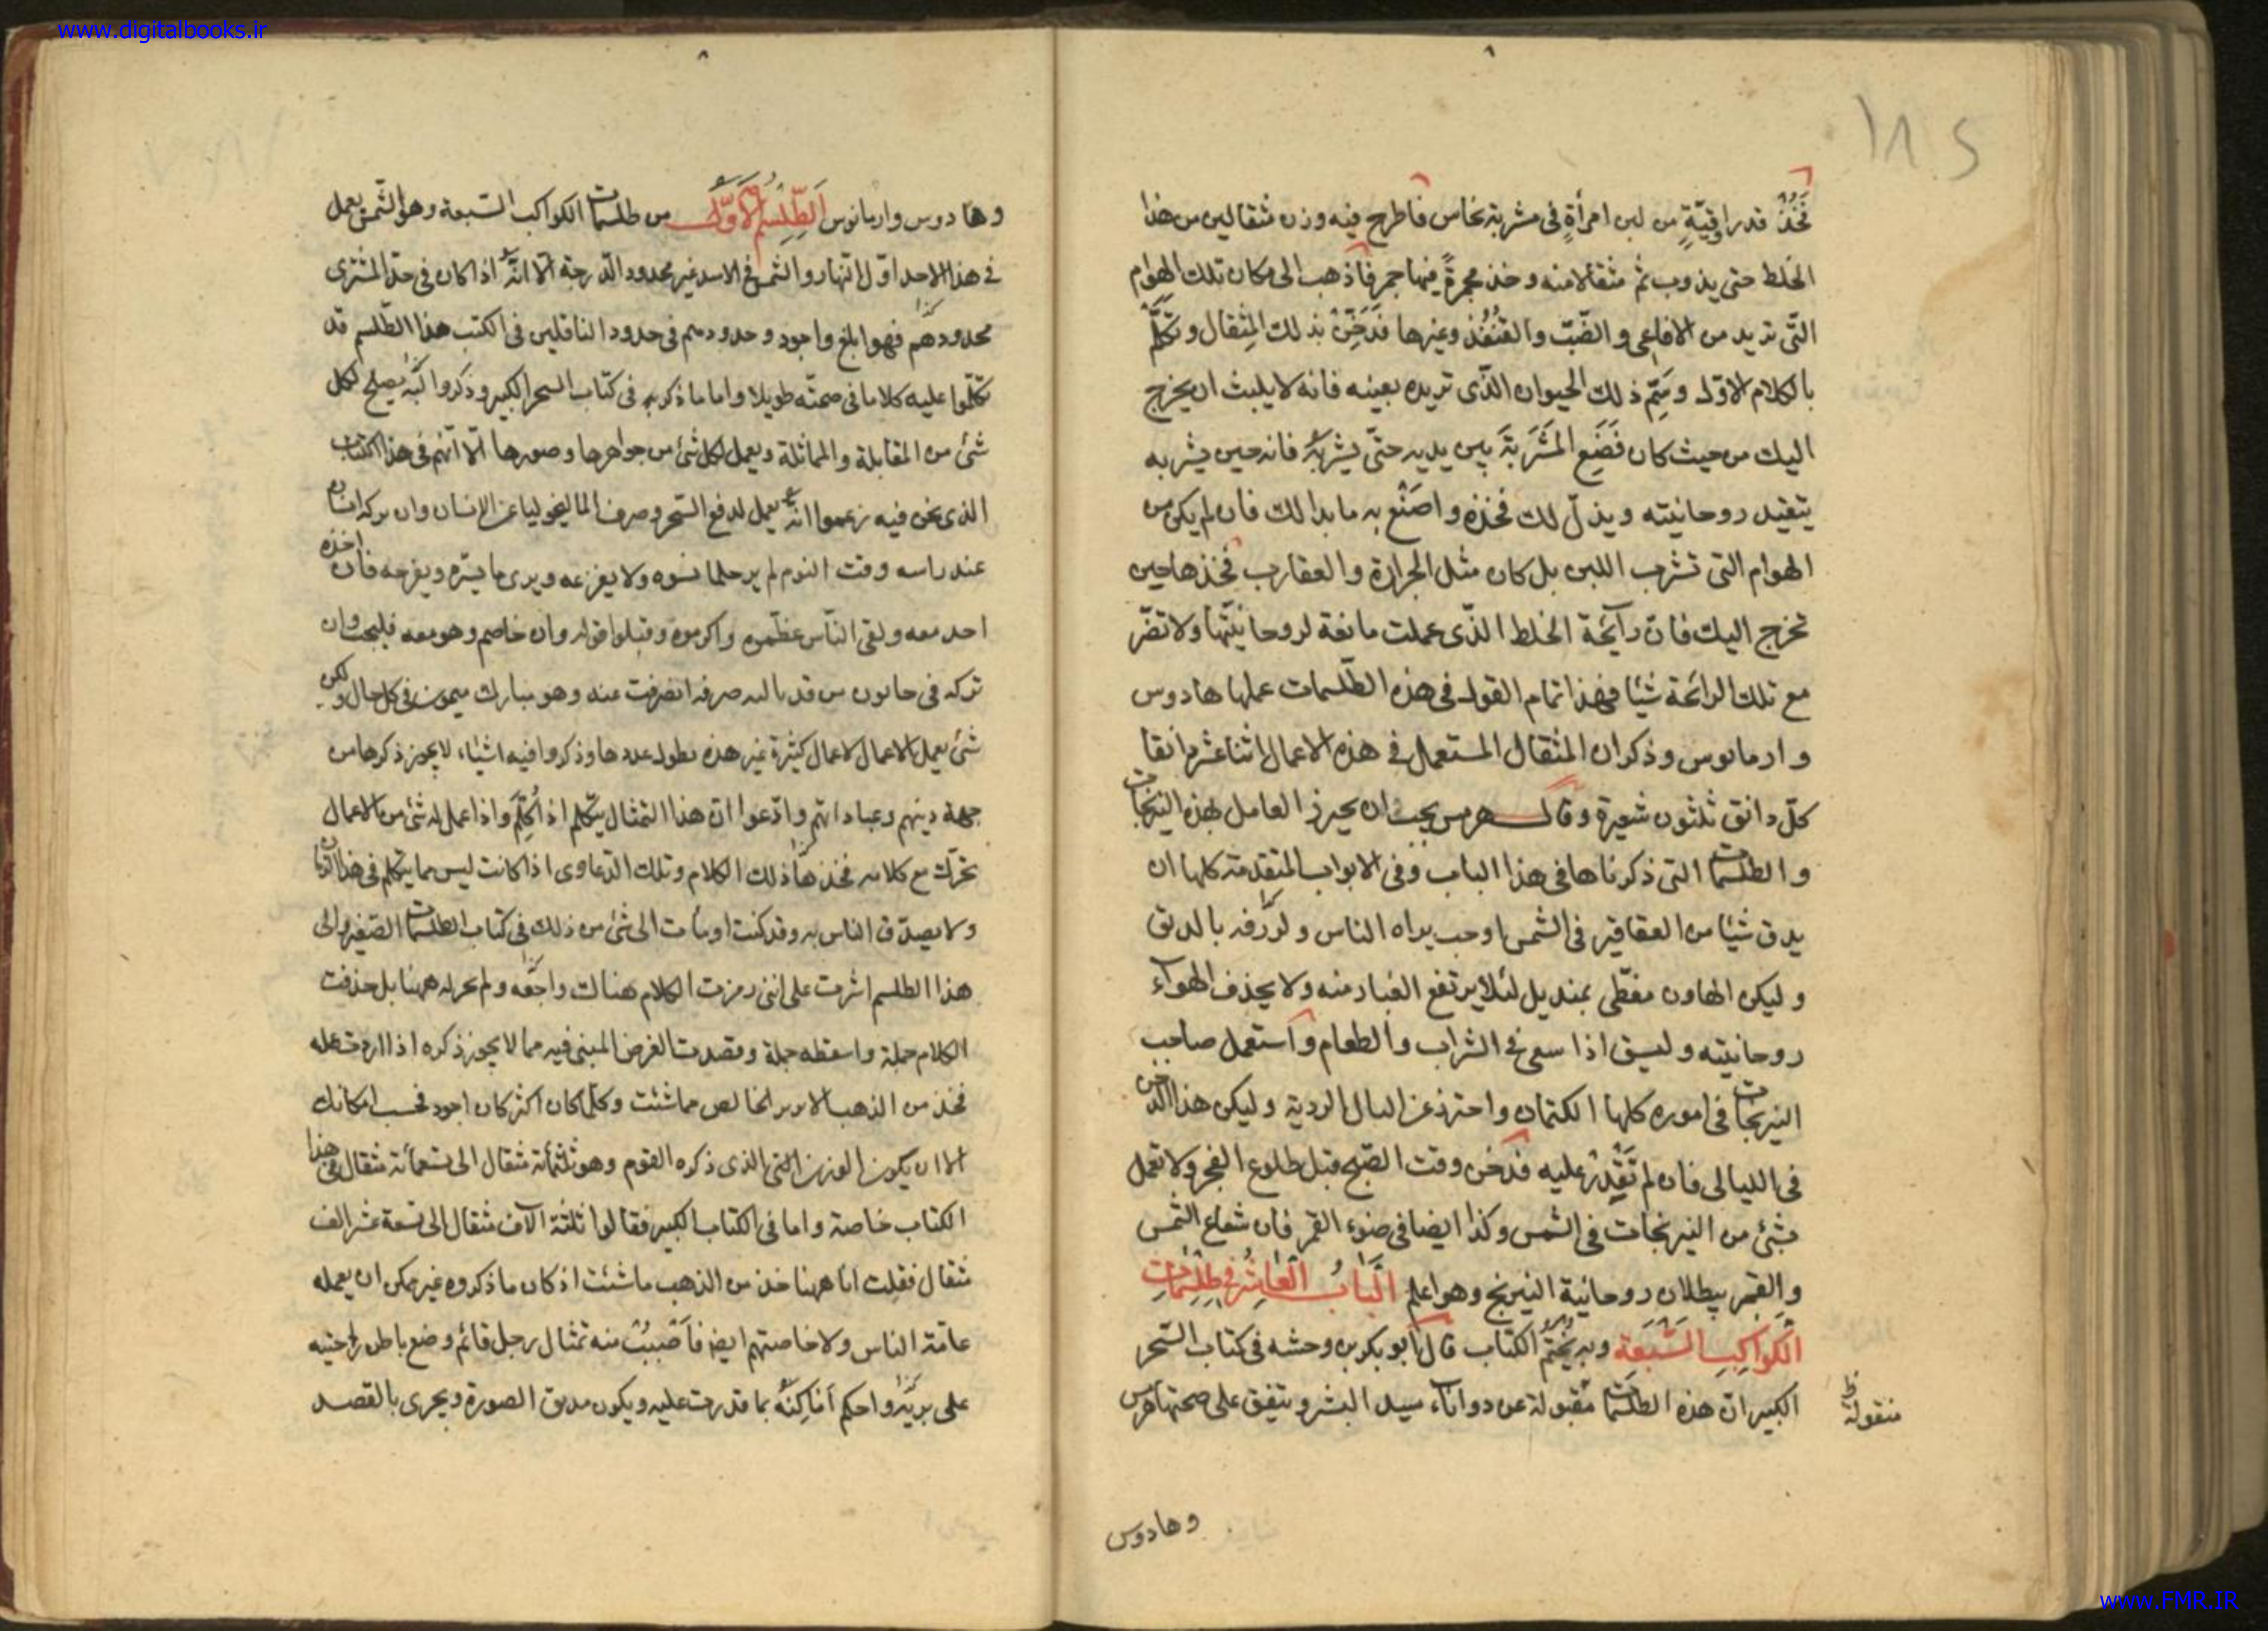 www.digitalbooks.ir
١٨٥
فَخُذْ قدر اوقيّةٍ من لبن امرأةٍ فى مشربة نحاس فاطرح فيه وزن مثقالين من هذا
الخلط حتى يذوب ثم مثقالا منه وخذ مجمرةً فيها جمر فاذهب الى مكان تلك الهوام
التّى تريد من الافاعى والضّبّ والقُنفُذ وغيرها فدَخِّنْ بذلك المِثقال وتكلَّم
بالكلام الاوّل وسَمِّ ذلك الحيوان الّذى تريده بعينه فانه لا يلبث ان يخرج
اليك من حيث كان فَضَعِ المَشرَبةَ بين يديه حتّى يشربهُ فانه حين يشربه
يتقيد روحانيته ويذلّ لك فخذه واصنَع به ما بدا لك فان لم يكن من
الهوام التى تشرب اللبن بل كان مثل الجرارة والعقارب فخذها حين
تخرج اليك فانّ رآئحة الخلط الذّى عملت مانعة لروحانيّتها ولا تضرّ
مع تلك الرائحة شيئا فهذا تمام القول فى هذه الطّلسمات عملها هادوس
وارمانوس وذكر ان المثقال المستعمل فى هذه الاعمال اثنا عشر دانقا
كلّ دانق ثلثون شعيرة وقال هرمس يجب ان يحيرز العامل لهذه النيرنجات
والطلسمات التى ذكرناها فى هذا الباب وفى الابواب المتقدمة كلها ان
يدق شيئا من العقاقير فى الشمس او حيث يراه الناس بالدق
وليكن الهاون مغطّى بمنديل لئلا يرتفع الغبار منه ولا يجذف الهواء
روحانيته اذا سعى فى الشراب والطعام واستعمل صاحب
النيرنجات فى اموره كلها الكتمان واحترز عن البال الردية وليكن هذا الدخن
فى الليالى فان لم تَقْدِرْ عليه فدخن وقت الصّبح قبل طلوع الفجر ولا تعمل
بشئ من النيرنجات فى الشمس وكذا ايضا فى ضوء القمر فان شعاع الشمس
والقمر يبطلان روحانية النيرنج وهو اعلم البَابُ العَاشِرُ فِى طِلِسْمَاتِ
الكَواكِبِ السَّبعَةِ وبه يُختمُ الكتاب قال ابو بكر بن وحشه فى كتاب السّحر
الكبير انّ هذه الطلسمات مقبولة عن دواناء سيد البشر ويتفق على صحتها هرمس
منقولة ظ
وهادوس
وهادوس وارمانوس الطِّلِسْمُ الاَوّلُ من طلسمات الكواكب السّبعة وهو الشّمس يعمل
فى هذا الاحد اوّل النهار والشمس فى الاسد غير محدود الدّرجة الّا انّه اذا كان فى حدّ المشترى
محدودهم فهو ابلغ واجود وحدودهم فى حدود الناقلين فى الكتب هذا الطّلسم قد
تكلّموا عليه كلاما فى صحتّه طويلا واما ما ذكر به فى كتاب السحر الكبير وذكروا انّه يصلح لكل
شئ من المقابلة والمماثلة ويعمل لكل شئ من جواهرها وصورها الّا انّهم فى هذا الكتاب
الذى نحن فيه زعموا انّه يعمل لدفع السّحر وصرف الماليخوليا عن الانسان وان تركه انسان
عند راسه وقت النوم لم ير حلما يسوه ولا يفزعه ويرى ما يسّره ويفرحه فان اخذه
احد معه ولقى النّاس عظّموه واكرموه وقبلوا قوله وان خاصم وهو معه وان
تركه فى من قد صرفه انصرفت عنه وهو مبارك ميمون فى كل حال ولكن
شئ يعمل الاعمال لاعمال كثيرة غير هذه يطول عددها وذكروا فيه اشياء لا يجوز ذكرها من
جهة دينهم وعباداتهم وادّعوا انّ هذا التمثال يتكلم اذا كُلِّمَ واذا عمل له شئ من الاعمال
تحرّك مع كلامه ذلك الكلام وتلك الدّعاوى اذا كانت ليس مما يتكلم فى هذا الزمان
ولا يصدّق الناس به وقد كنت اومأت الى شئ من ذلك فى كتاب الطلسمات الصّغير والى
هذا الطلسم اشرت على اننى رمزت الكلام هنالك ههنا بل حذفت
الكلام جملة واسقطه جملة وقصدت الغرض المبنى فيه مما لا يجوز ذكره اذا اردت عمله
فخذ من الذهب الابريز الخالص ما شئت وكلّما كان اكثر كان اجود فحسب امكانك
الا ان يكون الوزن الذى ذكره القوم وهو ثلثمائة مثقال الى تسعمائة مثقال فى هذا
الكتاب خاصة واما فى الكتاب الكبير فقالوا ثلثة الآف مثقال الى تسعة عشر الف
مثقال فقلت انا ههنا خذ من الذهب ما شئت اذ كان ما ذكروه غير ممكن ان يعمله
عامّة الناس ولا خاصتهم ايضا فاصْبِبْ منه تمثال رجل قائم وضع باطن راحتيه
على واحكم بما قدرت عليه ويكون مدقق الصورة ويجرى بالقصد
www.FMR.IR